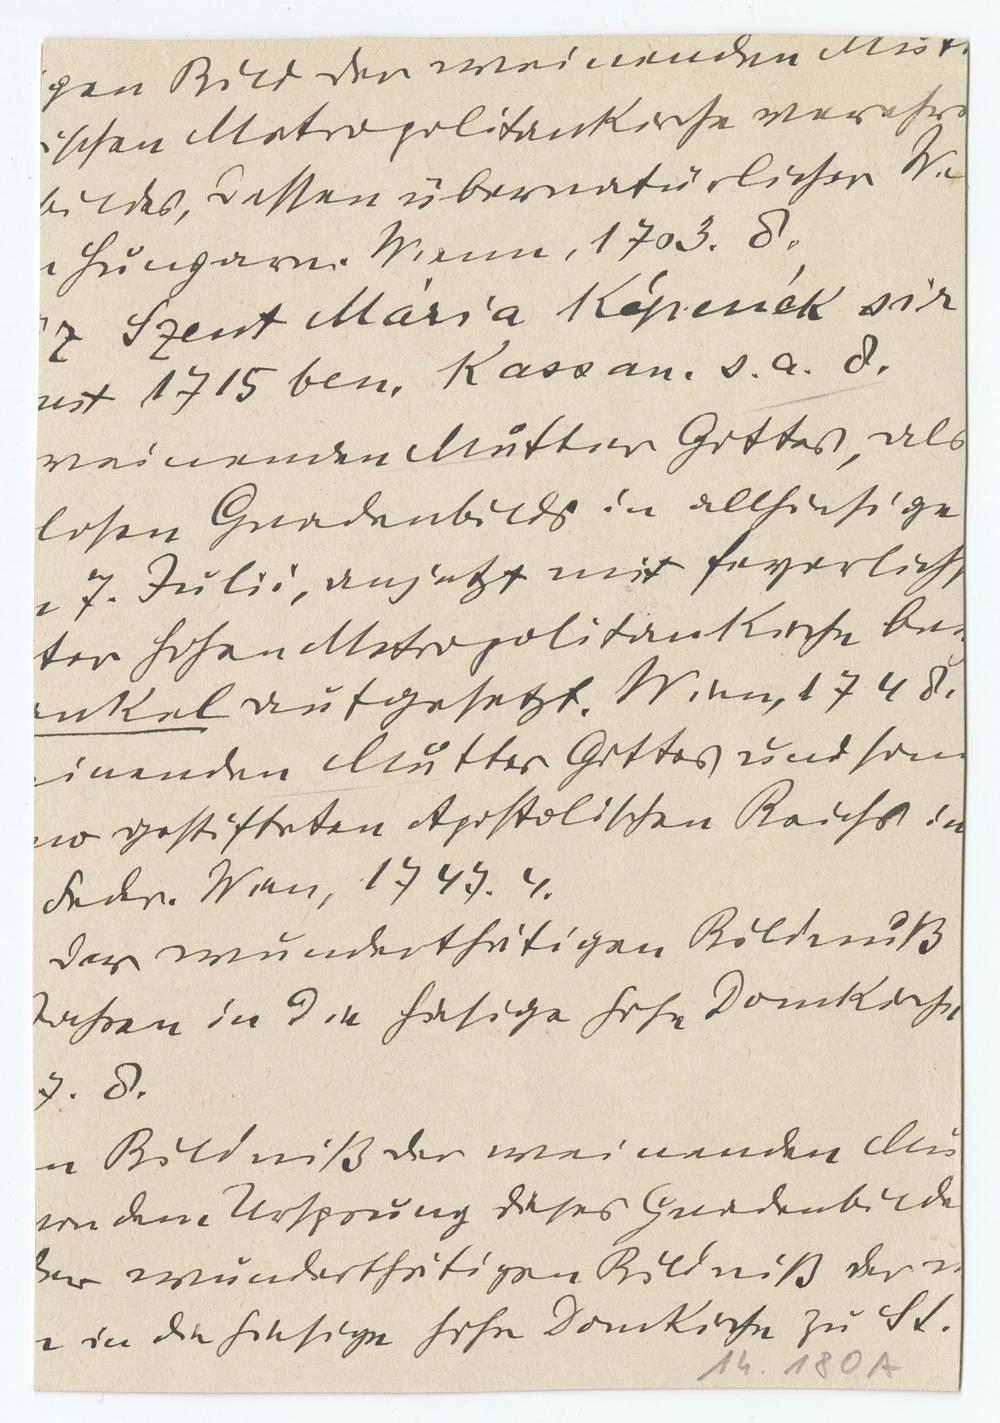 igen Bild der weinenden Mutt
ischen Metropolitankirche verehre
bildes, dessen übernatürlicher We
Hungarn. Wienn, 1703. 8.
Szent Mária Képenék sir
ust 1715 ben. Kassan. s. a. 8.
weinenden Mutter Gottes, als
losen Gnadenbilds in allhiesige
n 7. Julii, anjetzt mit feyerlich
ter hohen Metropolitankirche bei
nkel aufgesetzt. Wien, 174 8.
inenden Mutter Gottes und son
no gestifteten Apostolischen Reichs in
Feder. Wien, 1747. 4.
der wunderthätigen Bildnuß
Jahren in die hiesige hohe Domkirche
7. 8.
n Bildniß der weinenden Mu
von dem Ursprung dieses Gnadenbilde
der wunderthätigen Bildniß der w
n in die hiesige hohe Domkirche zu St.
14. 180A